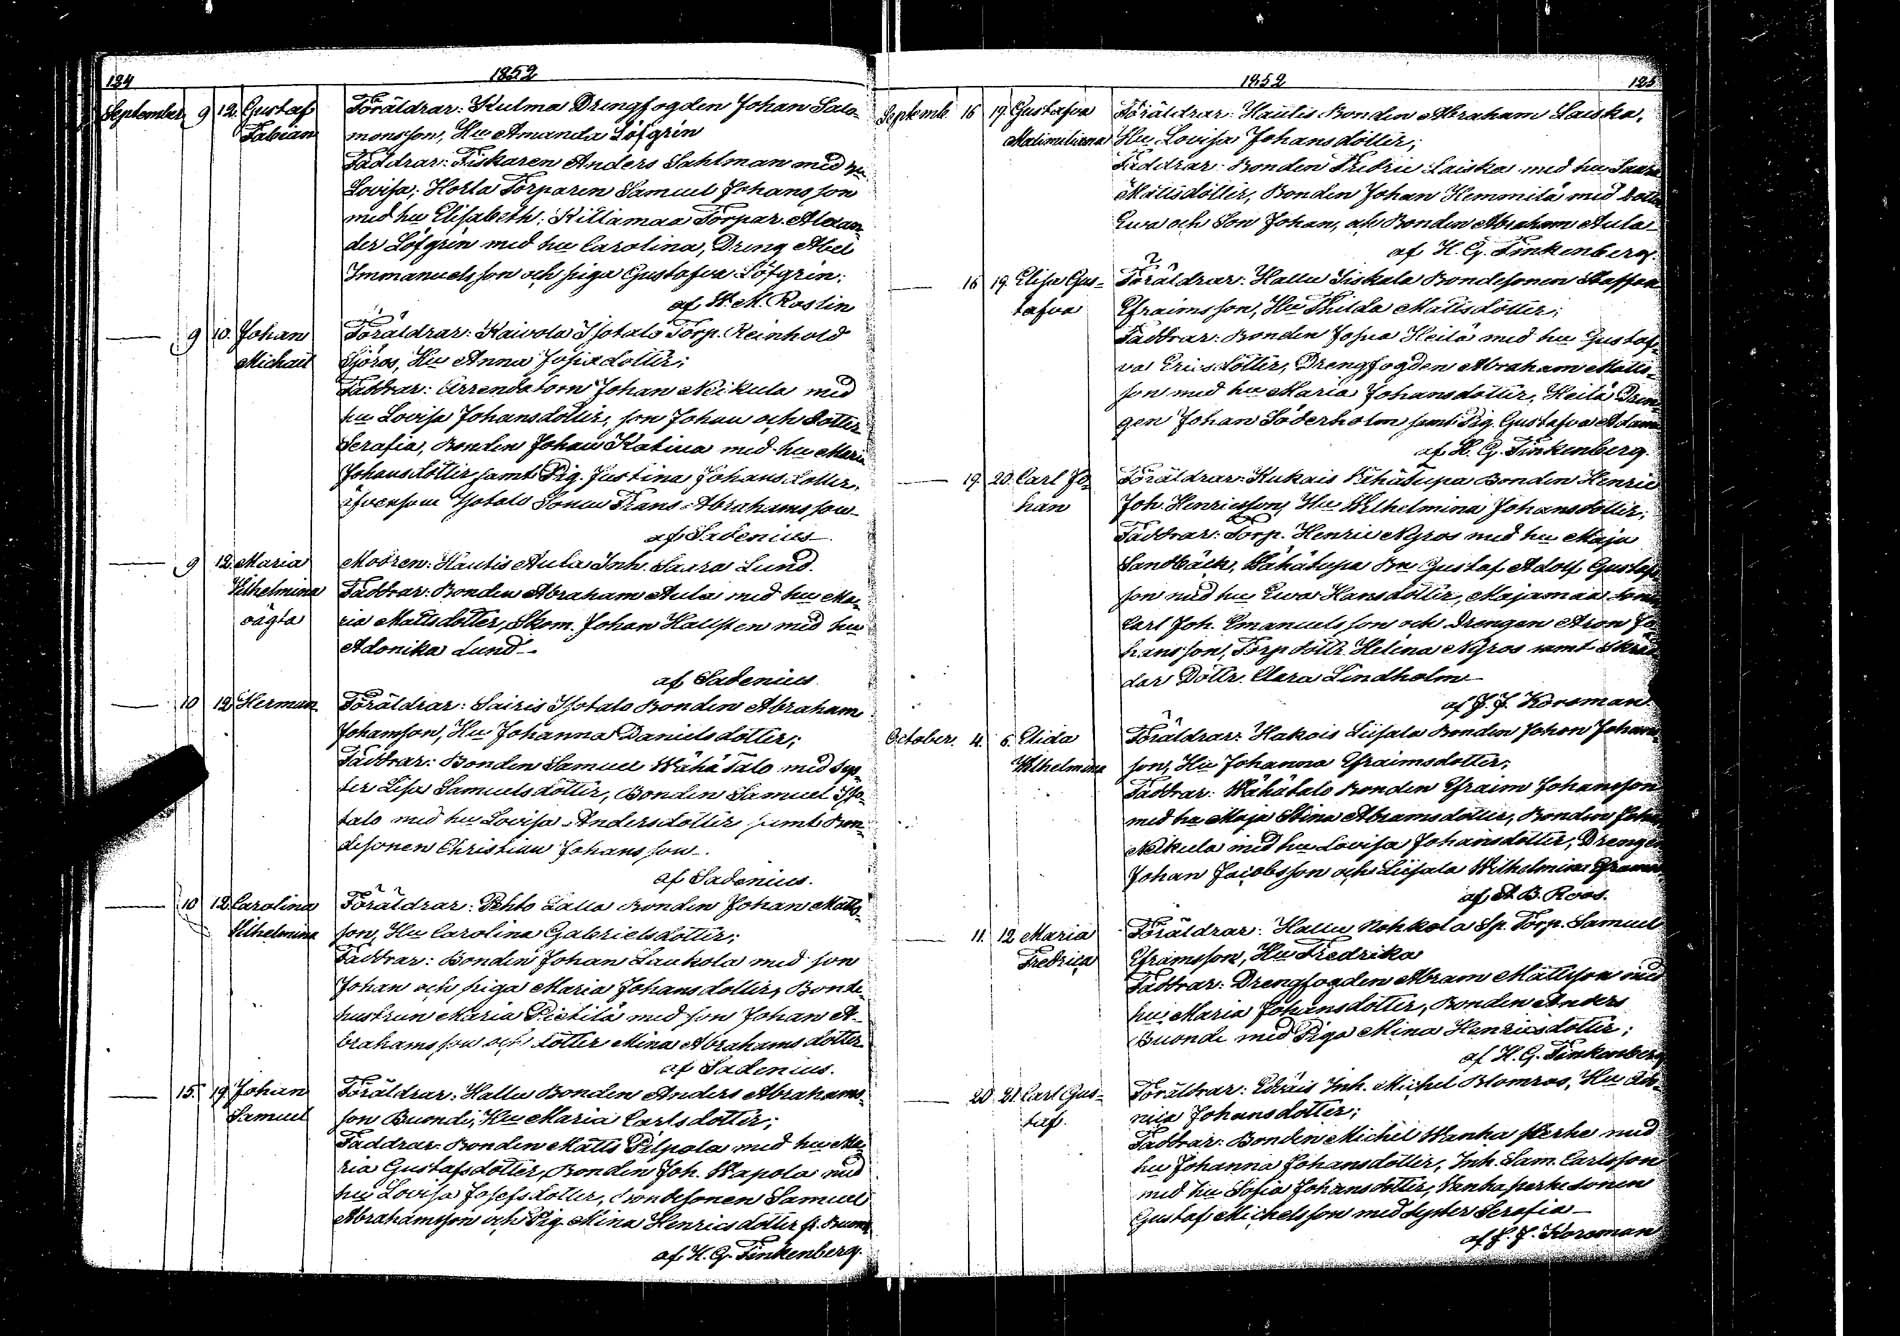 124 1852
September 9 12. Gustaf Föräldrar: Kulma Drengfogden Johan Salo-
Fabian monsson, Hu Amanda Löfgrén
Faddrar: Fiskaren Anders Sahlman med hu
Lovisa: Horla Torparen Samuel Johansson
med hu Elisabeth. Killamaa Torpar. Alexan-
der Löfgrén med hu Carolina, Dreng Abel
Immanuelsson och piga Gustafva Löfgrén:
af W. M. Roslin
9 10. Johan Föräldrar: Kaivola Isotalo Torp. Reinhold
Michael Sjöros, Hu Anna Josiædotter;
Faddrar: Arrendatorn Johan Neikula med
hu Lovisa Johansdotter, son Johan och dotter
Serafia, Bonden Johan Katina med hu Maria
Johansdotter samt Pig. Justina Johansdotter,
äfvensom Isotalo Sonen Frans Abrahamsson
af Sadenius
9 12. Maria Modren: Hautis Aula Inh. Saara Lund.
Wilhelmina Faddrar: Bonden Abraham Aula med hu Ma-
oägta ria Mattsdotter, Skom. Johan Hallsten med hu
Adonika Lund
af Sadenius.
10 12 Herman Föräldrar: Sairis Isotalo Bonden Abraham
Johansson, Hu Johanna Danielsdotter;
Faddrar: Bonden Samuel Wähä Talo med sys-
ter Lisa Samuelsdotter, Bonden Samuel Iso-
talo med hu Lovisa Andersdotter, samt Bon-
desonen Christian Johansson
af Sadenius.
10 12. Carolina Föräldrar: Pehto Lalla Bonden Johan Matts-
Wilhelmina son, Hu Carolina Gabrielsdotter;
Faddrar: Bonden Johan Laukola med son
Johan och piga Maria Johansdotter, Bonde-
hustrun Maria Pietilä med son Johan A-
brahamsson och dotter Mina Abrahamsdotter
af Sadenius.
15. 19. Johan Föräldrar: Hallu Bonden Anders Abrahams-
Samuel son Buondi, Hu Maria Carlsdotter;
Faddrar: Bonden Matts Pilpola med hu Ma-
ria Gustafsdotter, Bonden Joh. Wapola med
hu Lovisa Josefsdotter, Bondesonen Samuel
Abrahamsson och Pig. Mina Henricsdotter fr. Buondi
af H. G. Finkenberg.
1852 125
Septemb. 16 19. Gustafva Föräldrar: Hautis Bonden Abraham Laiska,
Maximiliana Hu Lovisa Johansdotter;
Faddrar: Bonden Fredric Laiska med hu Saara
Mattsdotter, Bonden Johan Hemmilä med dotter
Ewa och Son Johan, och Bonden Abraham Aula
af H. G. Finkenberg.
16 19. Elisa Gus- Föräldrar: Hallu Siskala Bondesonen Staffan
tafva Efraimsson, Hu Thilda Mattsdotter;
Faddrar: Bonden Josua Heilä med hu Gustaf-
va Ericsdotter, Drengfogden Abraham Matts-
son med hu Maria Johansdotter, Heilä Dren-
gen Johan Söderholm samt Pig. Gustafva Adams
af H. G. Finkenberg.
19. 20. Carl Jo- Föräldrar: Kukois Vähätupa Bonden Henric
han Joh. Henricsson, Hu Wilhelmina Johansdotter;
Faddrar: Torp. Henric Nyros med hu Maja
Sandbäck, Wähätupa Bn Gustaf Adolf Gustafs
son med hu Ewa Hansdotter, Majamaa sonen
Carl Joh. Emanuelsson och Drengen Aron Jo
hansson, Torpdottr. Helena Nyros samt Skräd
dar Dottr. Clara Lindholm
af J. J. Korsman.
October. 4. 6. Elida Föräldrar: Kakois Liisala Bonden Johan Johans-
Wilhelmina son, Hu Johanna Efraimsdotter;
Faddrar: Wähätalo Bonden Efraim Johansson
med hu Maja Stina Abramsdotter, Bonden Johan
Neikula med hu Lovisa Johansdotter, Drengen
Johan Jacobsson och Liisala Wilhelmina Efraims
af A. B. Roos.
11. 12. Maria Föräldrar: Hallu Nohkola Sp. Torp. Samuel
Fredrica Eframsson, Hu Fredrika
Faddrar: Drengfogden Abram Mattsson med
hu Maria Johansdotter, Bonden Anders
Buondi med Piga Mina Henricsdotter;
af H. G. Finkenberg
20 21 Carl Gus- Föräldrar: Edväis Inh. Michel Blomros, Hu
taf. Johansdotter;
Faddrar: Bonden Michel Wanha Perhe med
hu Johanna Johansdotter, Inh. Sam. Carlsson
med hu Sofia Johansdotter, Wanhaperhe sonen
Gustaf Michelsson med Syster Serafia
af J. J. Korsman